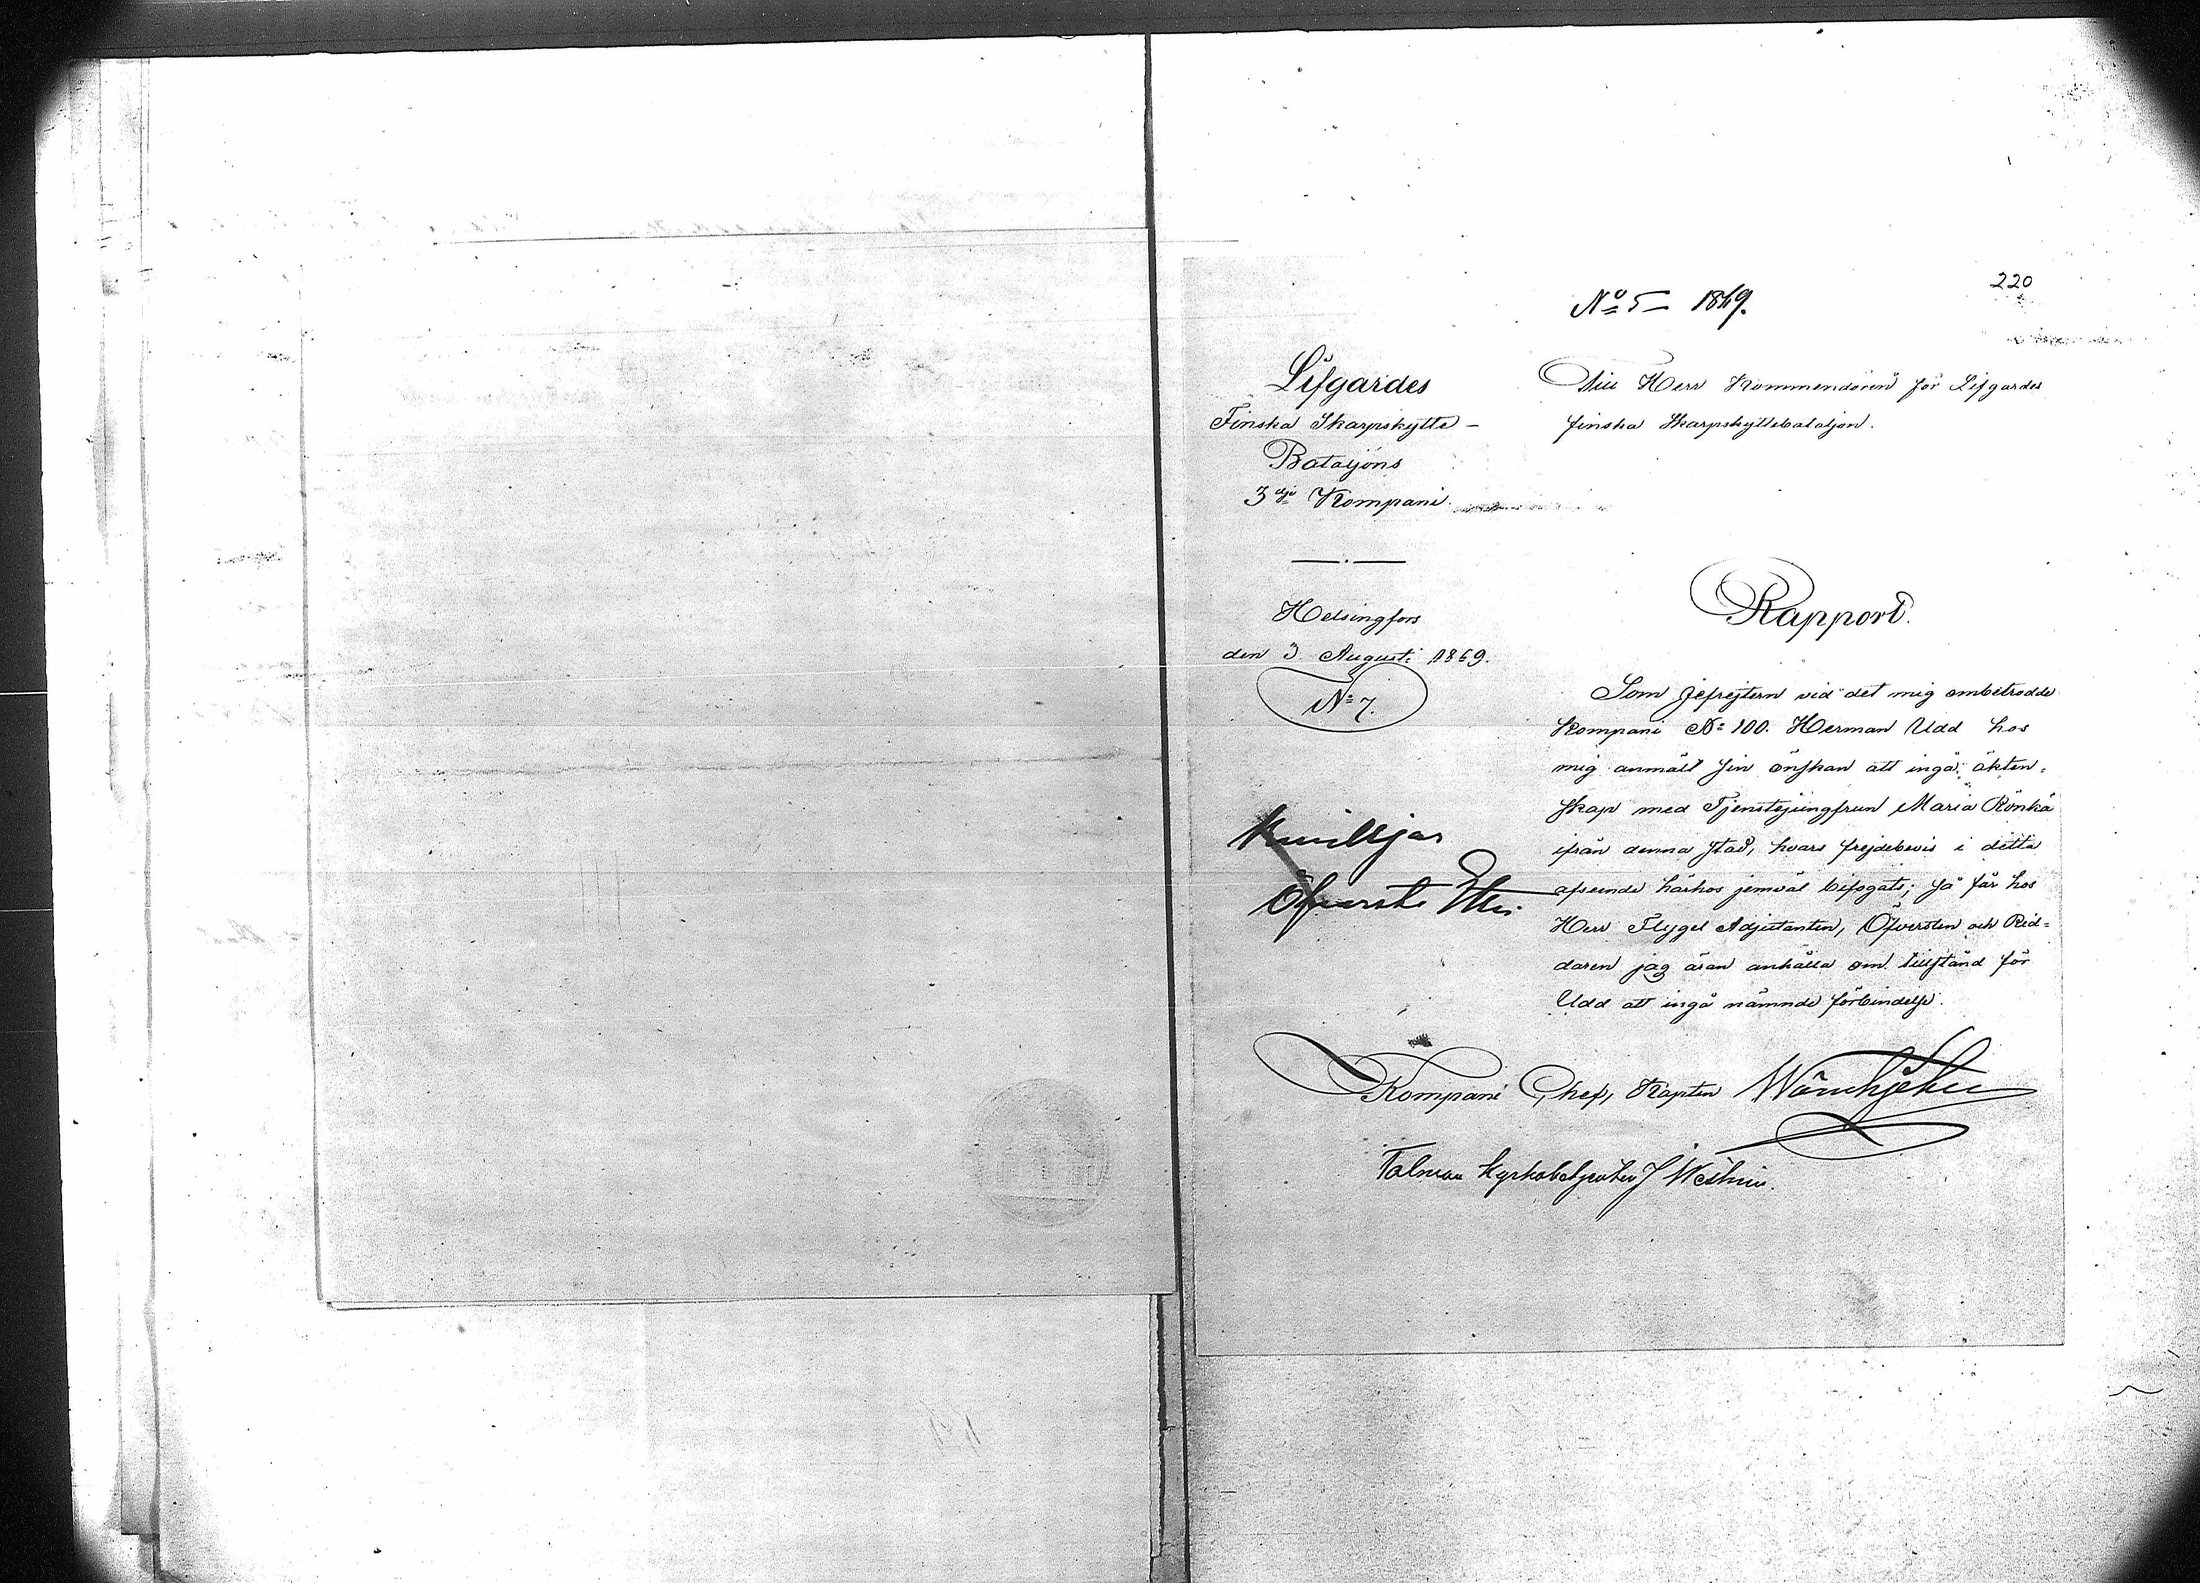 220
No 5 - 1869.
Lifgardes
Finska Skarpskytte-
Bataljons
3dje Kompani.
Helsingfors
den 3 Augusti 1869.
No 7.
Till Herr Kommendören för Lifgardes
finska Skarpskyttebataljon.
Rapport.
Som gefrejtern vid det mig ombetrodde
Kompani No 100. Herman Udd hos
mig anmält sin önskan att ingå äkten-
skap med Tjenstejungfrun Maria Rönkä
ifrån denna stad, hvars frejdebevis i detta
afseende härhos jemväl bifogats; så får hos
Herr Flygel Adjutanten, Öfversten och Rid-
daren jag äran anhålla om tillstånd för
Udd att ingå nämnde förbindelse.
Öfverste
Kompani Chef, Kapten
Talman Kyrkobetjenten J